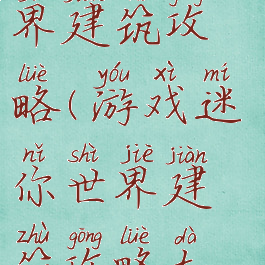 界建筑攻
lüè yóu xì mí
略(游戏迷
nǐ shì jiè jiàn
你世界建
zhù gōng lüè dà